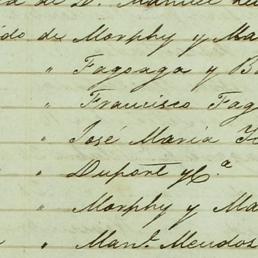 de D. Manuel de
ido de Morphy y Ma
" Fagoaga y B
" Francisco Fag
" José María F
" Duport y Cª
" Morphy y Ma
" Manl. Mendos